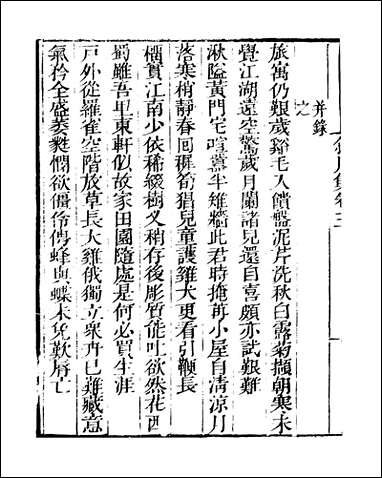 并錄
之
旅寓仍艱歲谿毛入饋盤泥芹洗秋白露菊擷朝寒未
覺江湖遠空驚歲月闌諸兒還自喜頗亦試艱難
湫隘黃門宅喧囂半雉牆此君時掩苒小屋自淸涼月
落寒梢靜春回稚筍猖兒童護雞犬更看引鞭長
櫺實江南少依稀綴樹又稍存後彫質能吐欲然花西
蜀雖吾里東軒似故家田園隨處是何必買生涯
戶外從羅雀空階放草長大雞俄獨立衆卉已難藏意
氣矜全盛萎蕤憫欲僵伶俜蜂與蝶未免歎脣亡
集卷三